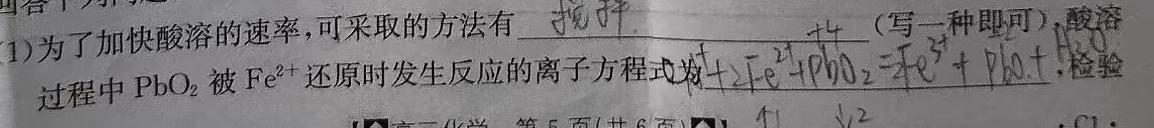 (1)为了加快酸溶的速率,可采取的方法有 搅拌 (写一种即可),酸溶
+4
过程中 PbO₂ 被 Fe²⁺ 还原时发生反应的离子方程式为 +2Fe²⁺+PbO₂=2Fe³⁺+ ,检验
第 5 页(共 6 页)
↑1 ↓2